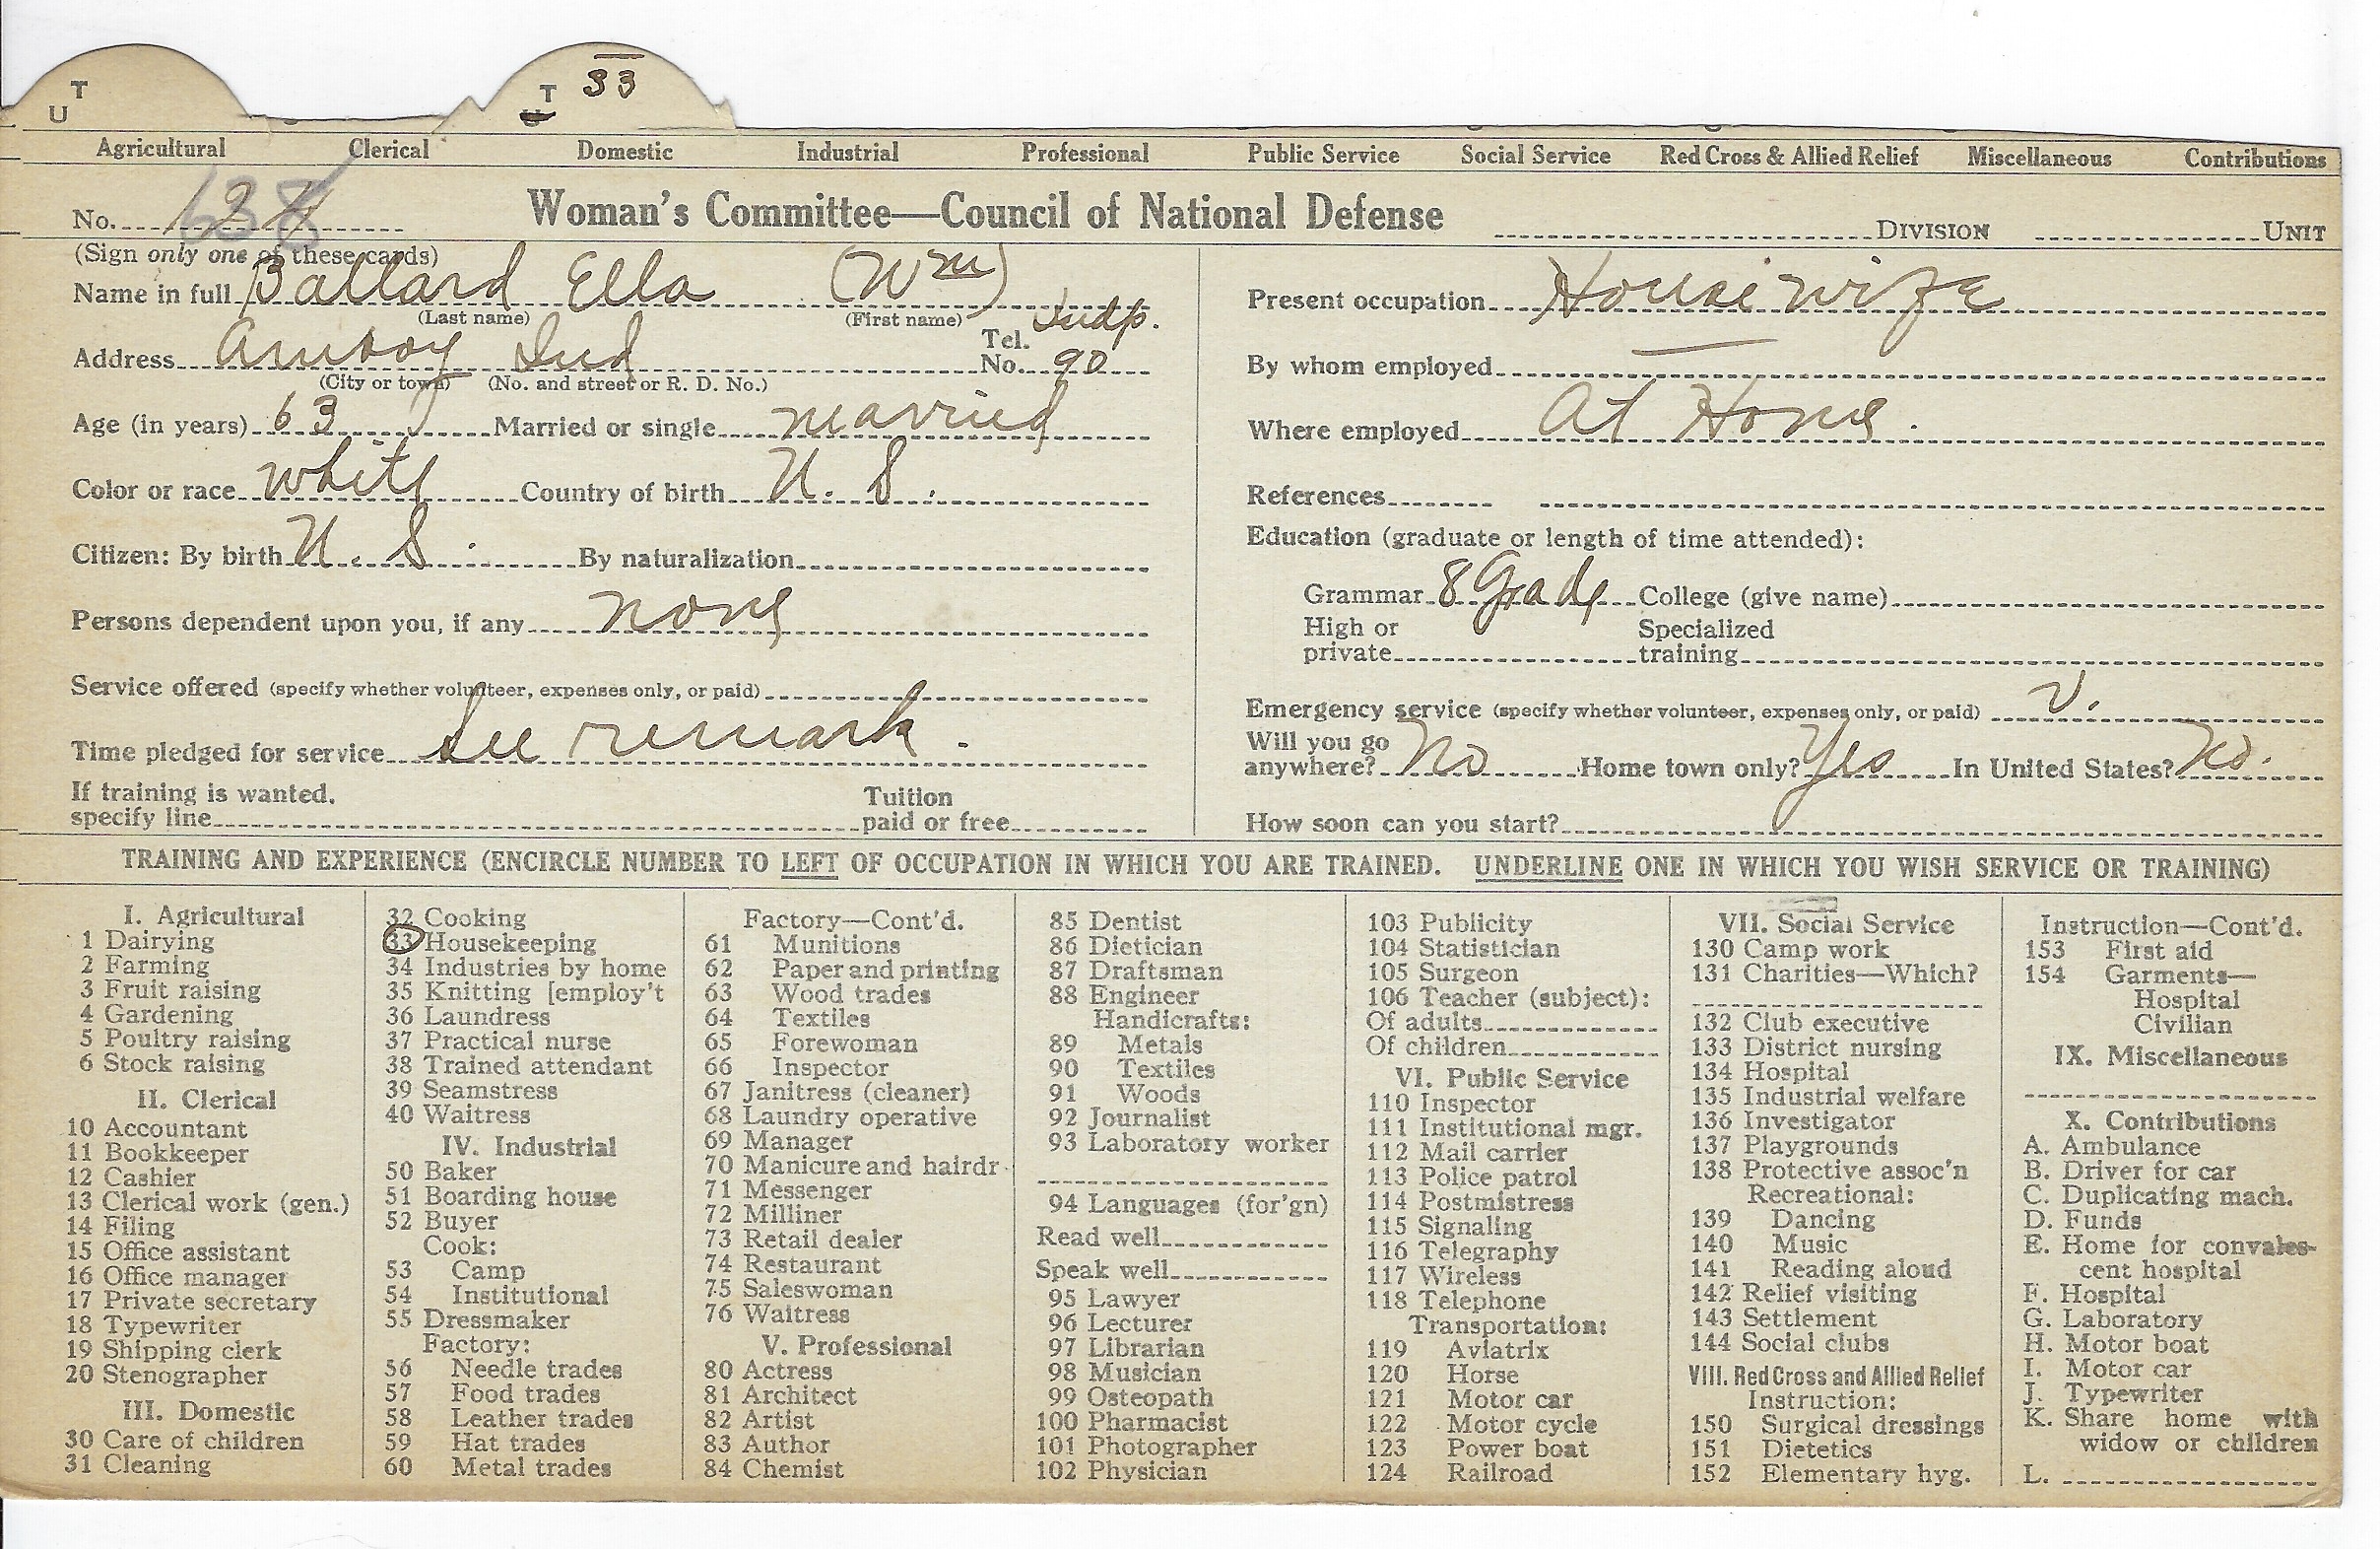 T
U
T
U
33
Agricultural Clerical Domestic Industrial Professional Public Service Social Service Red Cross & Allied Relief Miscellaneous Contributions
No. 638
Woman's Committee—Council of National Defense
DIVISION UNIT
(Sign only one of these cards)
Name in full Ballard Ella (Wm)
(Last name) (First name)
Address Amboy Ind Tel. No. Indp. 90
(City or town) (No. and street or R. D. No.)
Age (in years) 63 Married or single married
Color or race white Country of birth U. S.
Citizen: By birth U. S. By naturalization
Persons dependent upon you, if any none
Service offered (specify whether volunteer, expenses only, or paid)
Time pledged for service See remark.
If training is wanted, specify line Tuition paid or free
Present occupation Housewife
By whom employed —
Where employed At Home.
References
Education (graduate or length of time attended):
Grammar 8 Grade College (give name)
High or private Specialized training
Emergency service (specify whether volunteer, expenses only, or paid) v.
Will you go anywhere? No Home town only? Yes In United States? No.
How soon can you start?
TRAINING AND EXPERIENCE (ENCIRCLE NUMBER TO LEFT OF OCCUPATION IN WHICH YOU ARE TRAINED. UNDERLINE ONE IN WHICH YOU WISH SERVICE OR TRAINING)
I. Agricultural
1 Dairying
2 Farming
3 Fruit raising
4 Gardening
5 Poultry raising
6 Stock raising
II. Clerical
10 Accountant
11 Bookkeeper
12 Cashier
13 Clerical work (gen.)
14 Filing
15 Office assistant
16 Office manager
17 Private secretary
18 Typewriter
19 Shipping clerk
20 Stenographer
III. Domestic
30 Care of children
31 Cleaning
32 Cooking
33 Housekeeping
34 Industries by home
35 Knitting [employ't
36 Laundress
37 Practical nurse
38 Trained attendant
39 Seamstress
40 Waitress
IV. Industrial
50 Baker
51 Boarding house
52 Buyer
Cook:
53 Camp
54 Institutional
55 Dressmaker
Factory:
56 Needle trades
57 Food trades
58 Leather trades
59 Hat trades
60 Metal trades
Factory—Cont'd.
61 Munitions
62 Paper and printing
63 Wood trades
64 Textiles
65 Forewoman
66 Inspector
67 Janitress (cleaner)
68 Laundry operative
69 Manager
70 Manicure and hairdr.
71 Messenger
72 Milliner
73 Retail dealer
74 Restaurant
75 Saleswoman
76 Waitress
V. Professional
80 Actress
81 Architect
82 Artist
83 Author
84 Chemist
85 Dentist
86 Dietician
87 Draftsman
88 Engineer
Handicrafts:
89 Metals
90 Textiles
91 Woods
92 Journalist
93 Laboratory worker
94 Languages (for'gn)
Read well
Speak well
95 Lawyer
96 Lecturer
97 Librarian
98 Musician
99 Osteopath
100 Pharmacist
101 Photographer
102 Physician
103 Publicity
104 Statistician
105 Surgeon
106 Teacher (subject):
Of adults
Of children
VI. Public Service
110 Inspector
111 Institutional mgr.
112 Mail carrier
113 Police patrol
114 Postmistress
115 Signaling
116 Telegraphy
117 Wireless
118 Telephone
Transportation:
119 Aviatrix
120 Horse
121 Motor car
122 Motor cycle
123 Power boat
124 Railroad
VII. Social Service
130 Camp work
131 Charities—Which?
132 Club executive
133 District nursing
134 Hospital
135 Industrial welfare
136 Investigator
137 Playgrounds
138 Protective assoc'n
Recreational:
139 Dancing
140 Music
141 Reading aloud
142 Relief visiting
143 Settlement
144 Social clubs
VIII. Red Cross and Allied Relief
Instruction:
150 Surgical dressings
151 Dietetics
152 Elementary hyg.
Instruction—Cont'd.
153 First aid
154 Garments—
Hospital
Civilian
IX. Miscellaneous
X. Contributions
A. Ambulance
B. Driver for car
C. Duplicating mach.
D. Funds
E. Home for convales-
cent hospital
F. Hospital
G. Laboratory
H. Motor boat
I. Motor car
J. Typewriter
K. Share home with
widow or children
L.